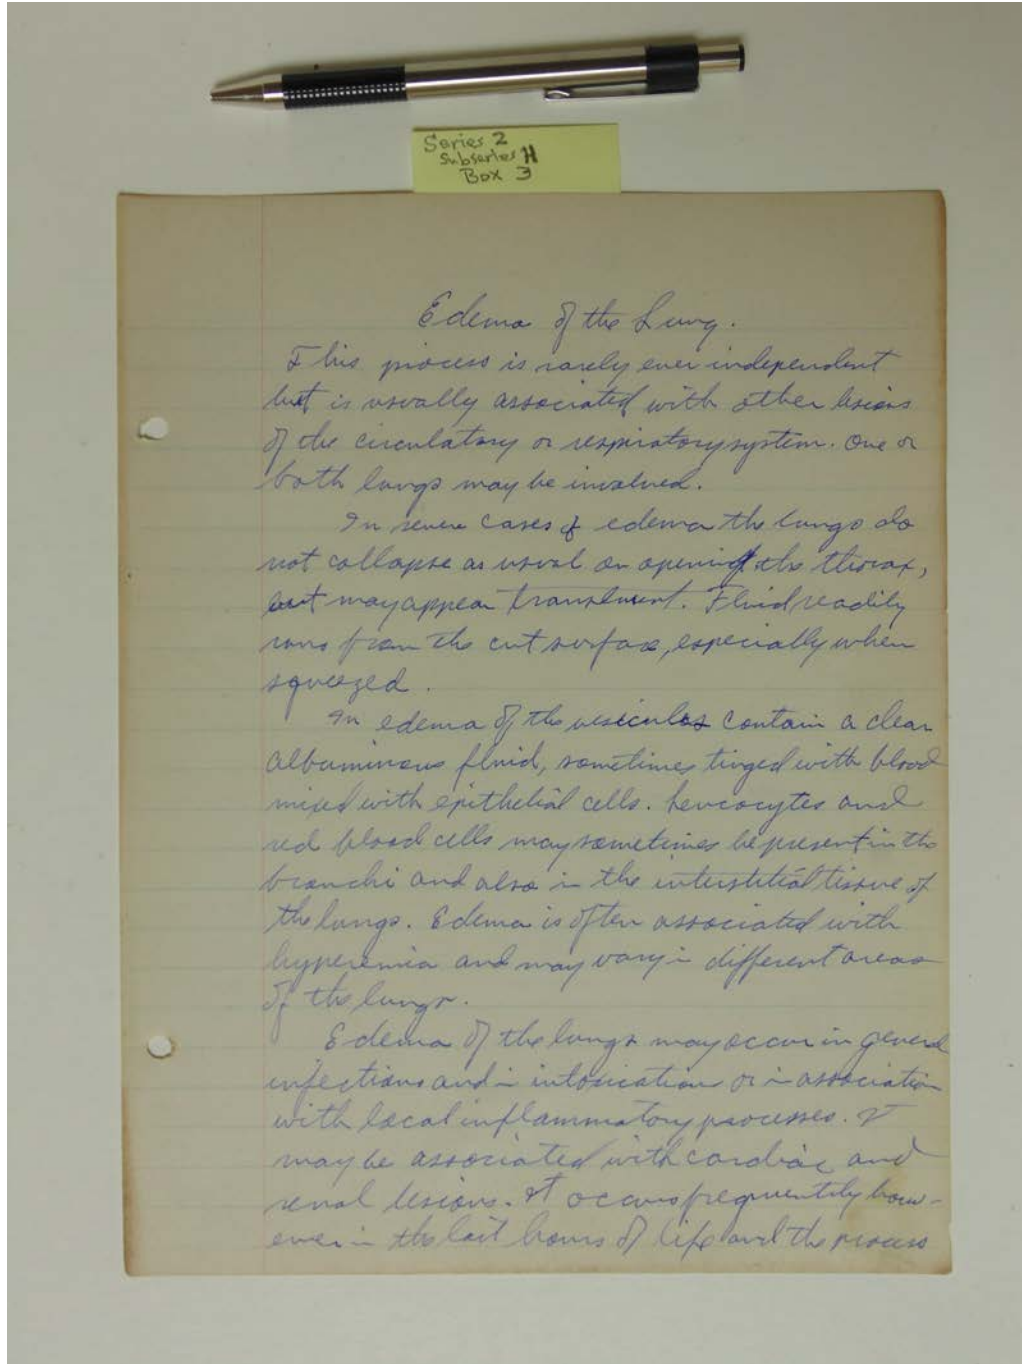 Series 2
Subseries H
Box 3
Edema of the Lung.
This process is rarely ever independent
but is usually associated with other lesions
of the circulatory or respiratory system. One or
both lungs may be involved.
In severe cases of edema the lungs do
not collapse as usual on opening the thorax,
but may appear translucent. Fluid readily
runs from the cut surface, especially when
squeezed.
In edema of the vesicules contain a clear
albuminous fluid, sometimes tinged with blood
mixed with epithelial cells. Leucocytes and
red blood cells may sometimes be present in the
bronchi and also in the interstitial tissue of
the lungs. Edema is often associated with
hyperemia and may vary in different areas
of the lungs.
Edema of the lungs may occur in general
infections and in intoxication or in association
with local inflammatory processes. It
may be associated with cardiac and
renal lesions. It occurs frequentily how-
ever in the last hours of life and the process